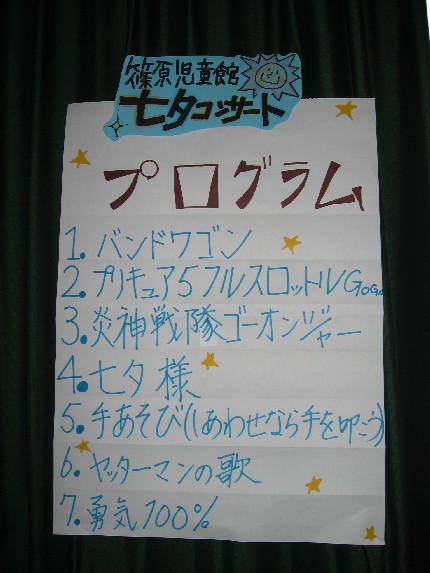 篠原児童館
七夕コンサート
プログラム
1. バンドワゴン
2. プリキュア5フルスロットルGoGo
3. 炎神戦隊ゴーオンジャー
4. 七夕様
5. 手あそび(しあわせなら手を叩こう)
6. ヤッターマンの歌
7. 勇気100%